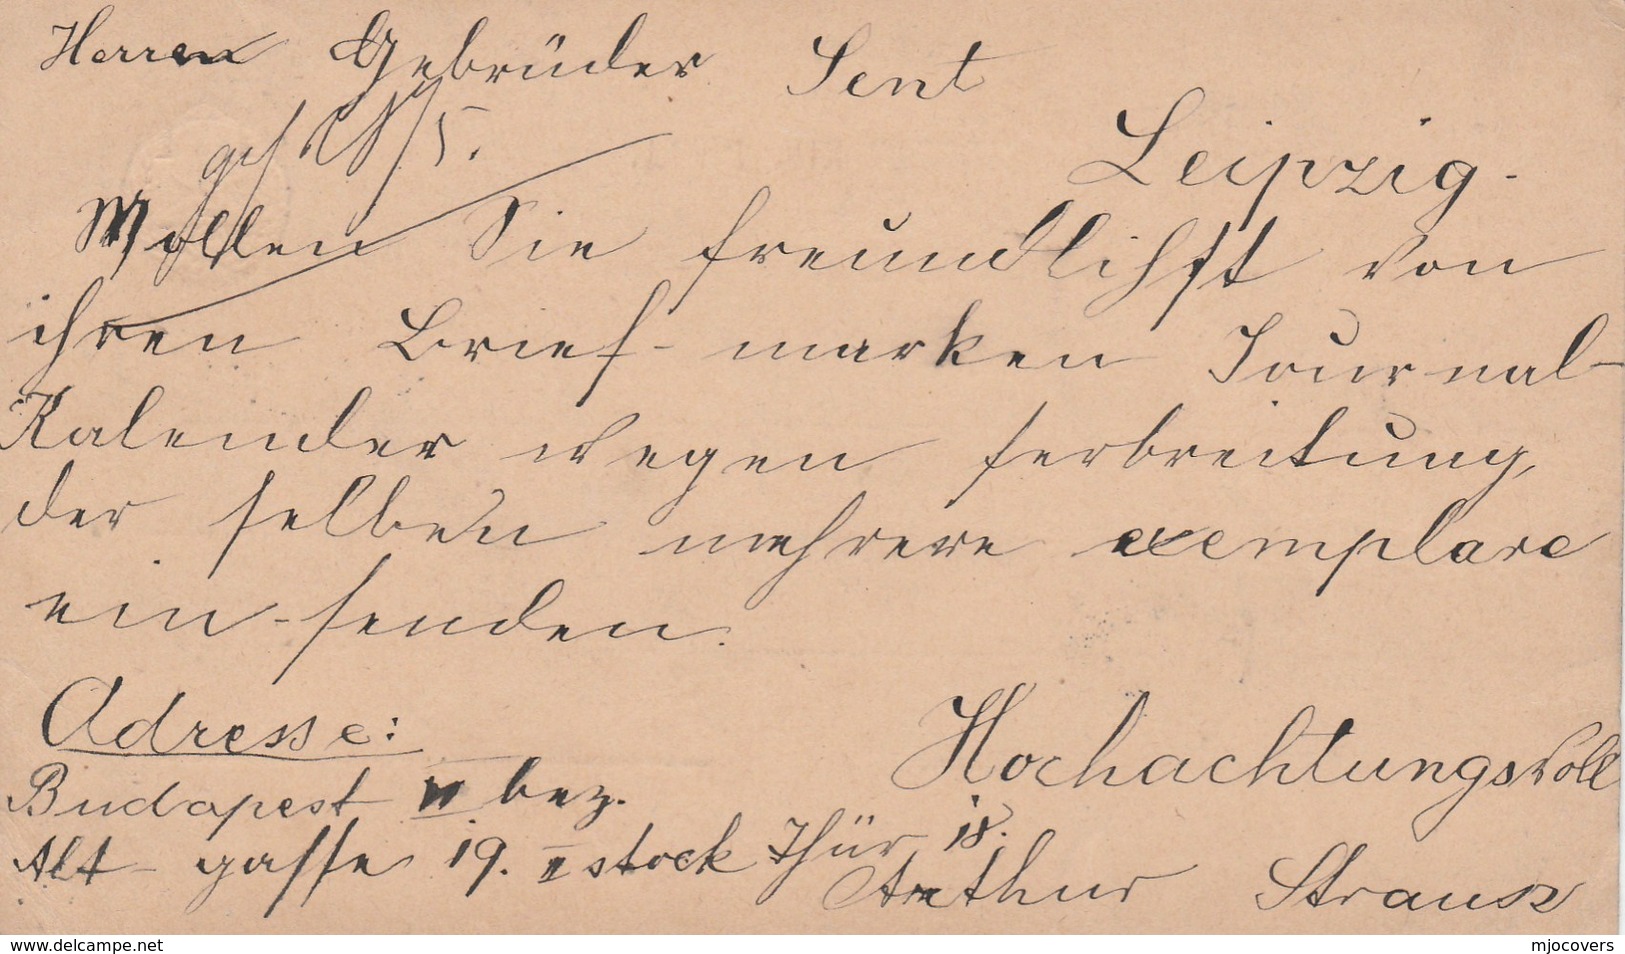 Herren Gebrüder Sent
Leipzig.
Wollen Sie freundlichst von
ihren Brief-marken Journal-
Kalender wegen ferbreitung
der selben mehrere exemplare
ein-senden.
Adresse:
Hochachtungsvoll
Budapest VI bez.
Alt-gasse 19. II stock Thür 18.
Arthur Strausz
www.delcampe.net
mjocovers